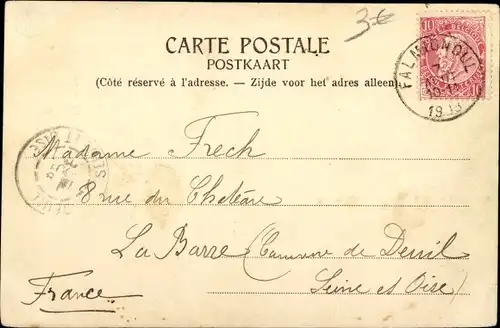 3€
CARTE POSTALE
POSTKAART
(Côté réservé à l'adresse. – Zijde voor het adres alleen)
10 10
FALMIGNOUL
1913
Madame Frech
8 rue du Château
La Barre (Commune de Deuil
Seine et Oise)
France